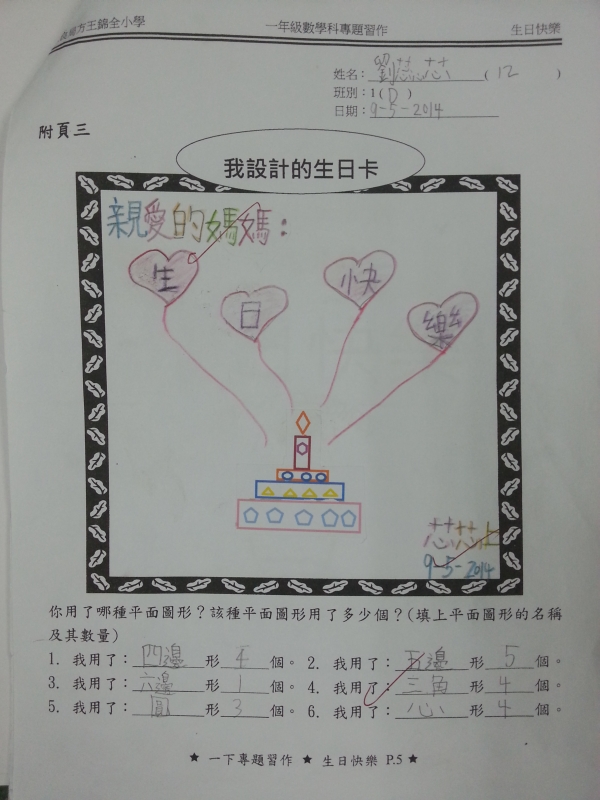 方王錦全小學 一年級數學科專題習作 生日快樂
姓名：劉芯芯(12)
班別：1(D)
日期：9-5-2014
附頁三
我設計的生日卡
親愛的媽媽：
生日快樂
芯芯上
9-5-2014
你用了哪種平面圖形？該種平面圖形用了多少個？(填上平面圖形的名稱
及其數量)
1. 我用了：四邊形4個。 2. 我用了：五邊形5個。
3. 我用了：六邊形1個。 4. 我用了：三角形4個。
5. 我用了：圓形3個。 6. 我用了：心形4個。
★ 一下專題習作 ★ 生日快樂 P.5 ★